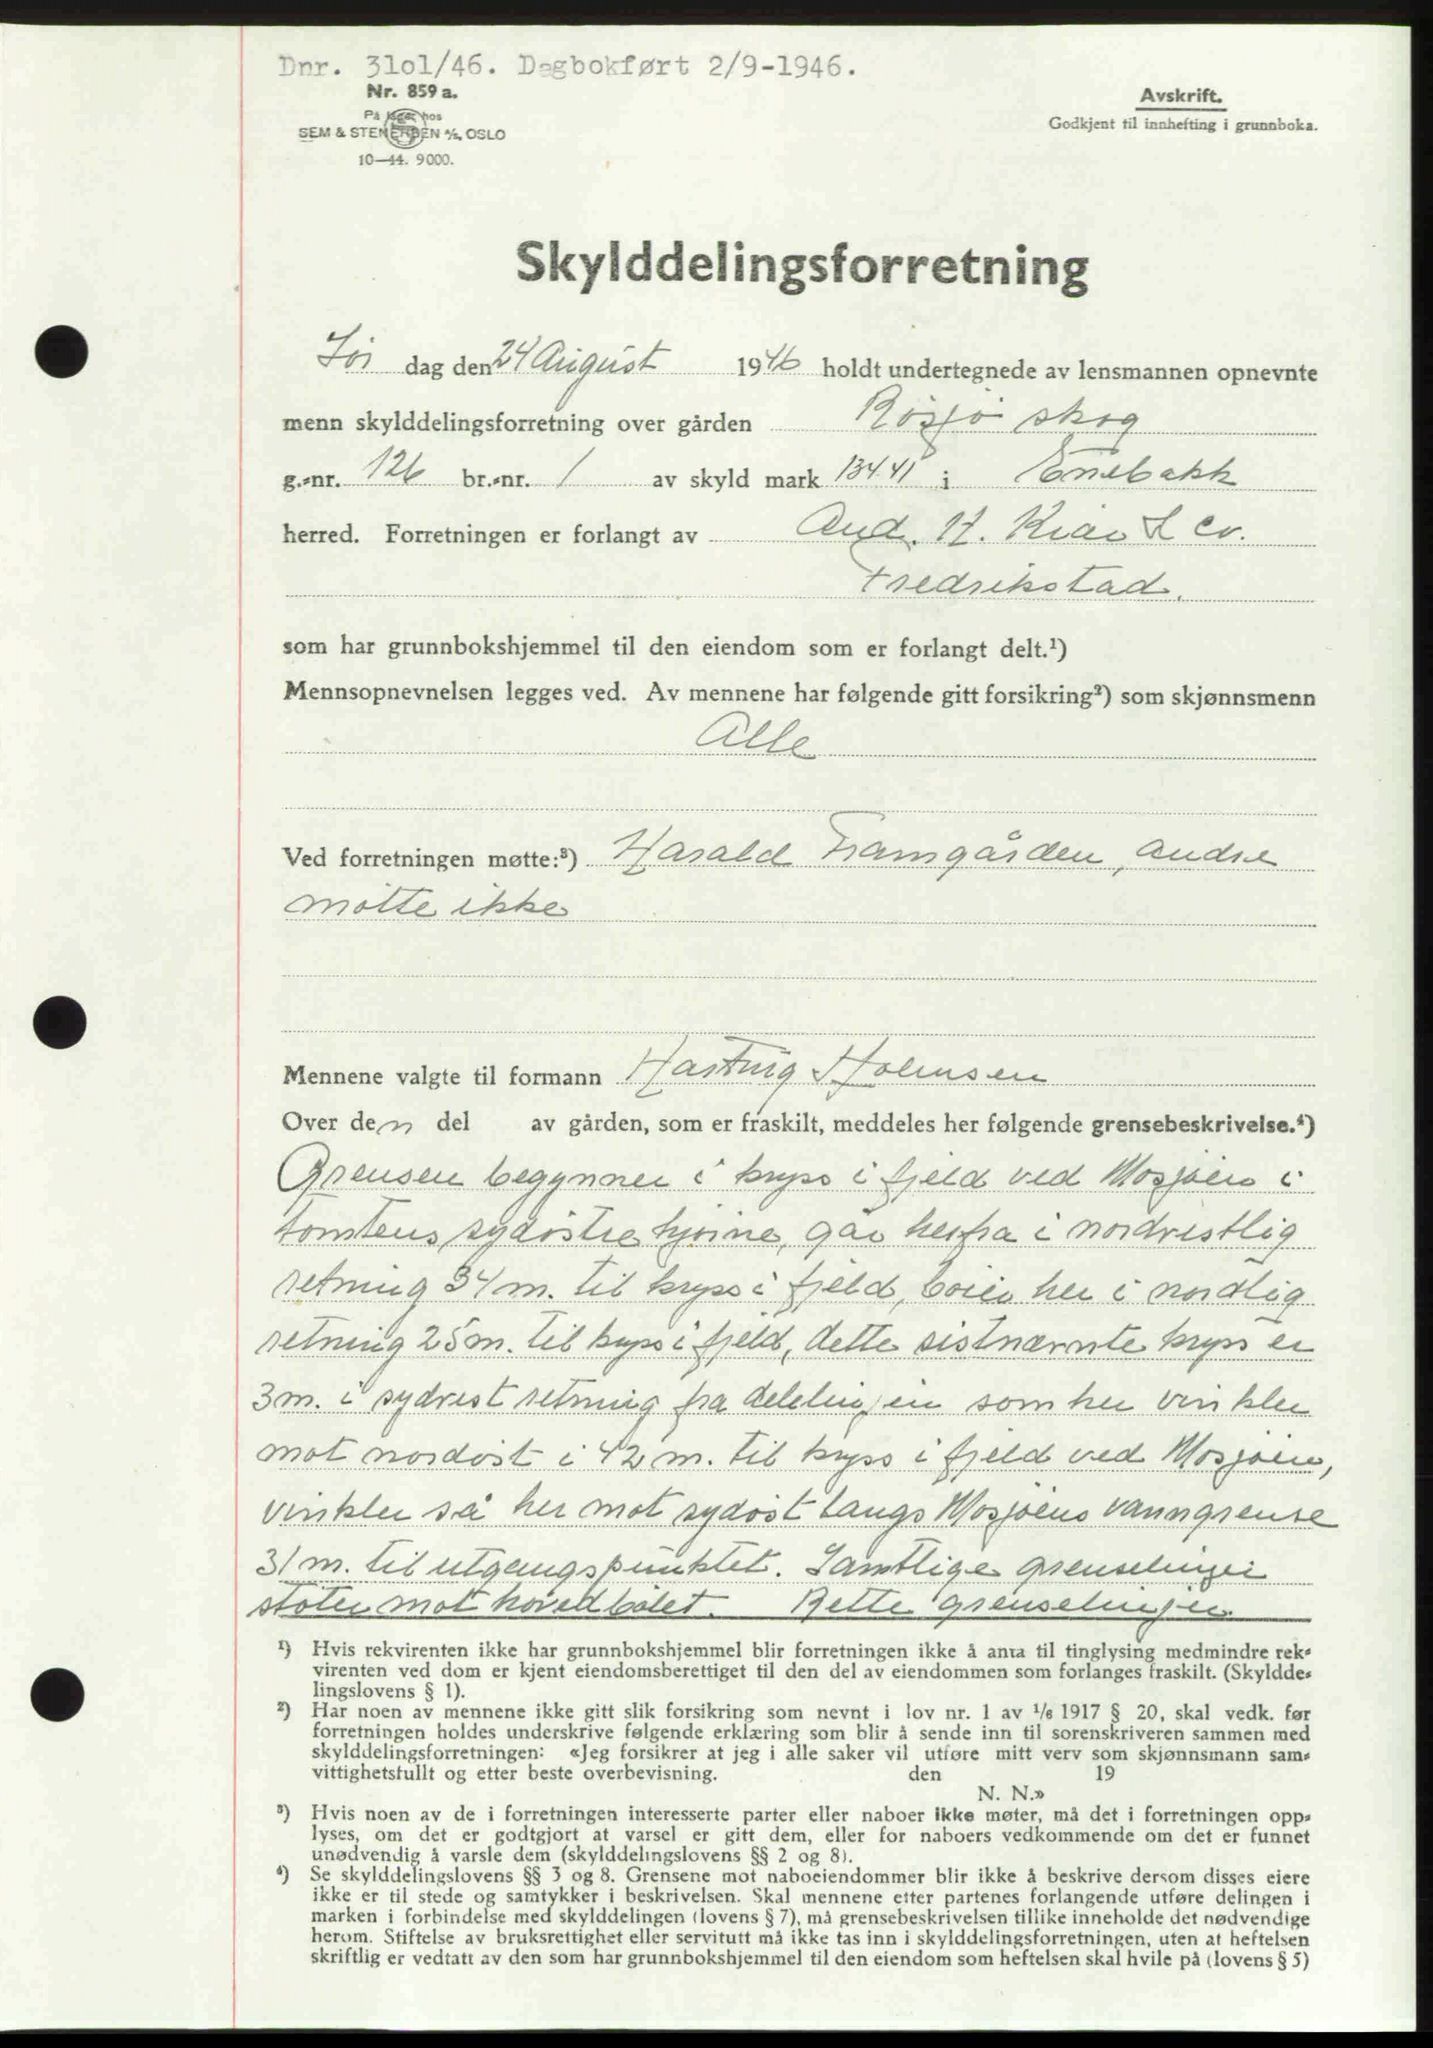 Dnr. 3101/46. Dagbokført 2/9-1946.
Nr. 859 a.
På lager hos
SEM & STENERSEN A/S, OSLO
10—44. 9000.
Avskrift.
Godkjent til innhefting i grunnboka.
Skylddelingsforretning
Lør dag den 24 August 1946 holdt undertegnede av lensmannen opnevnte
menn skylddelingsforretning over gården Røsjø skog
g.-nr. 126 br.-nr. 1 av skyld mark 134.41 i Enebakk
herred. Forretningen er forlangt av And. H. Kiær & Co.
Fredrikstad.
som har grunnbokshjemmel til den eiendom som er forlangt delt.¹)
Mennsopnevnelsen legges ved. Av mennene har følgende gitt forsikring²) som skjønnsmenn
Alle
Ved forretningen møtte:³) Harald Framgården, andre
møtte ikke
Mennene valgte til formann Hartvig Holmsen
Over den del av gården, som er fraskilt, meddeles her følgende grensebeskrivelse.⁴)
Grensen begynner i kryss i fjeld ved Mosjøen i
tomtens sydøstre hjørne, går herfra i nordvestlig
retning 34 m. til kryss i fjeld, bøier her i nordlig
retning 25 m. til kryss i fjeld, dette sistnævnte kryss er
3 m. i sydvest retning fra delelinjen som her vinkler
mot nordøst i 42 m. til kryss i fjeld ved Mosjøen,
vinkler så her mot sydøst langs Mosjøens vanngrense
31 m. til utgangspunktet. Samtlige grenselinjer
støter mot hovedbølet. Rette grenselinjer.
¹) Hvis rekvirenten ikke har grunnbokshjemmel blir forretningen ikke å anta til tinglysing medmindre rek-
virenten ved dom er kjent eiendomsberettiget til den del av eiendommen som forlanges fraskilt. (Skyldde-
lingslovens § 1).
²) Har noen av mennene ikke gitt slik forsikring som nevnt i lov nr. 1 av ¹/₆ 1917 § 20, skal vedk. før
forretningen holdes underskrive følgende erklæring som blir å sende inn til sorenskriveren sammen med
skylddelingsforretningen: «Jeg forsikrer at jeg i alle saker vil utføre mitt verv som skjønnsmann sam-
vittighetsfullt og etter beste overbevisning. den 19
N. N.»
³) Hvis noen av de i forretningen interesserte parter eller naboer ikke møter, må det i forretningen opp-
lyses, om det er godtgjort at varsel er gitt dem, eller for naboers vedkommende om det er funnet
unødvendig å varsle dem (skylddelingslovens §§ 2 og 8).
⁴) Se skylddelingslovens §§ 3 og 8. Grensene mot naboeiendommer blir ikke å beskrive dersom disses eiere
ikke er til stede og samtykker i beskrivelsen. Skal mennene etter partenes forlangende utføre delingen i
marken i forbindelse med skylddelingen (lovens § 7), må grensebeskrivelsen tillike inneholde det nødvendige
herom. Stiftelse av bruksrettighet eller servitutt må ikke tas inn i skylddelingsforretningen, uten at heftelsen
skriftlig er vedtatt av den som har grunnbokshjemmel til den eiendom som heftelsen skal hvile på (lovens § 5)